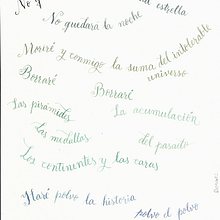 No
estrella
No quedará la noche
Moriré y conmigo la suma del intolerable
universo
Borraré
Borraré
Las pirámides
La acumulación
Las medallas
del pasado
Los continentes y las caras
Haré polvo la historia
polvo el polvo